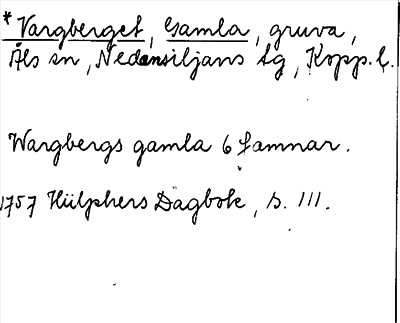 * Vargberget, Gamla, gruva,
Åls sn, Nedansiljans tg, Kopp. l.
Wargbergs gamla 6 famnar.
1757 Hülphers Dagbok, s. 111.